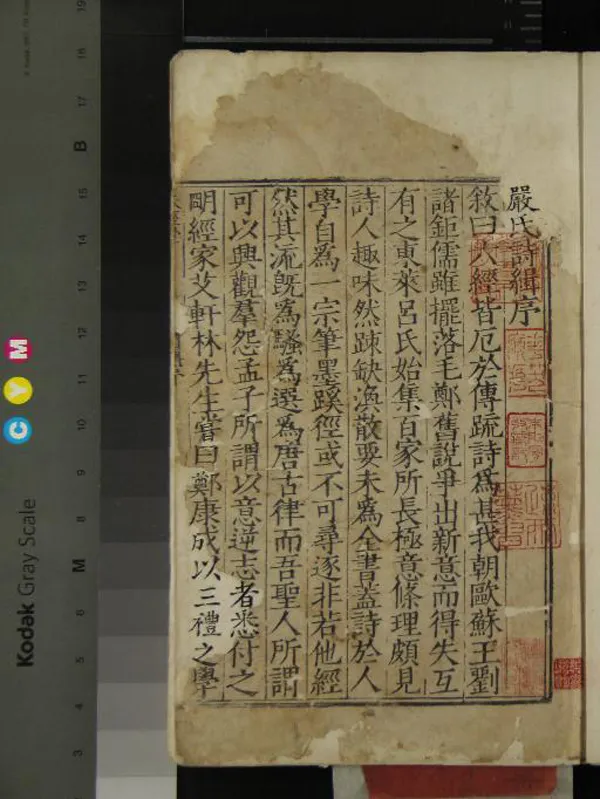 嚴氏詩緝序
敘曰六經皆厄於傳疏詩爲甚我朝歐蘇王劉
諸鉅儒雖擺落毛鄭舊說爭出新意而得失互
有之東萊呂氏始集百家所長極意條理頗見
詩人趣味然踈缺渙散要未爲全書葢詩於人
學自爲一宗筆墨蹊徑或不可尋逐非若他經
然其流旣爲騷爲選爲唐古律而吾聖人所謂
可以興觀羣怨孟子所謂以意逆志者悉付之
明經家艾軒林先生嘗曰鄭康成以三禮之學
Kodak Gray Scale
C Y M
B
M
19
18
17
16
15
14
13
12
11
10
9
8
7
6
5
4
3